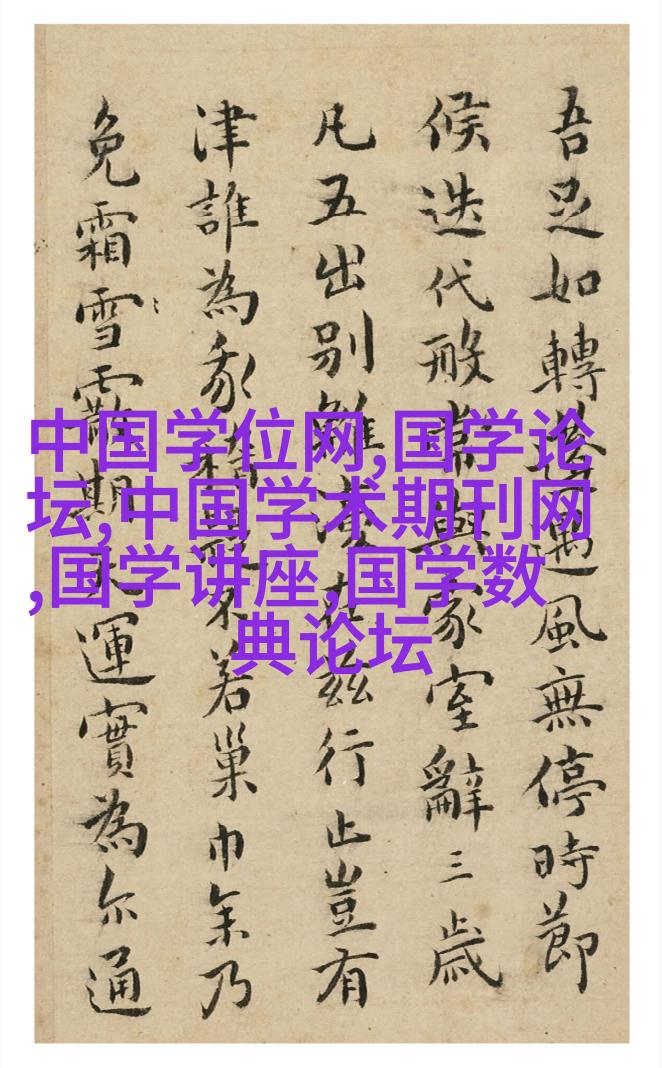 吾足如轉遇風無停時節
候迭代常與家室辭三歲
凡五出別在茲行止豈有
津誰為不若巢乃
免霜雪期天運實為尔通
中国学位网,国学论
坛,中国学术期刊网
,国学讲座,国学数
典论坛